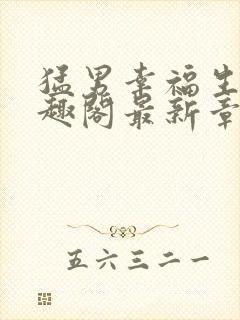 猛男幸福生
趣阁最新章
五六三二一